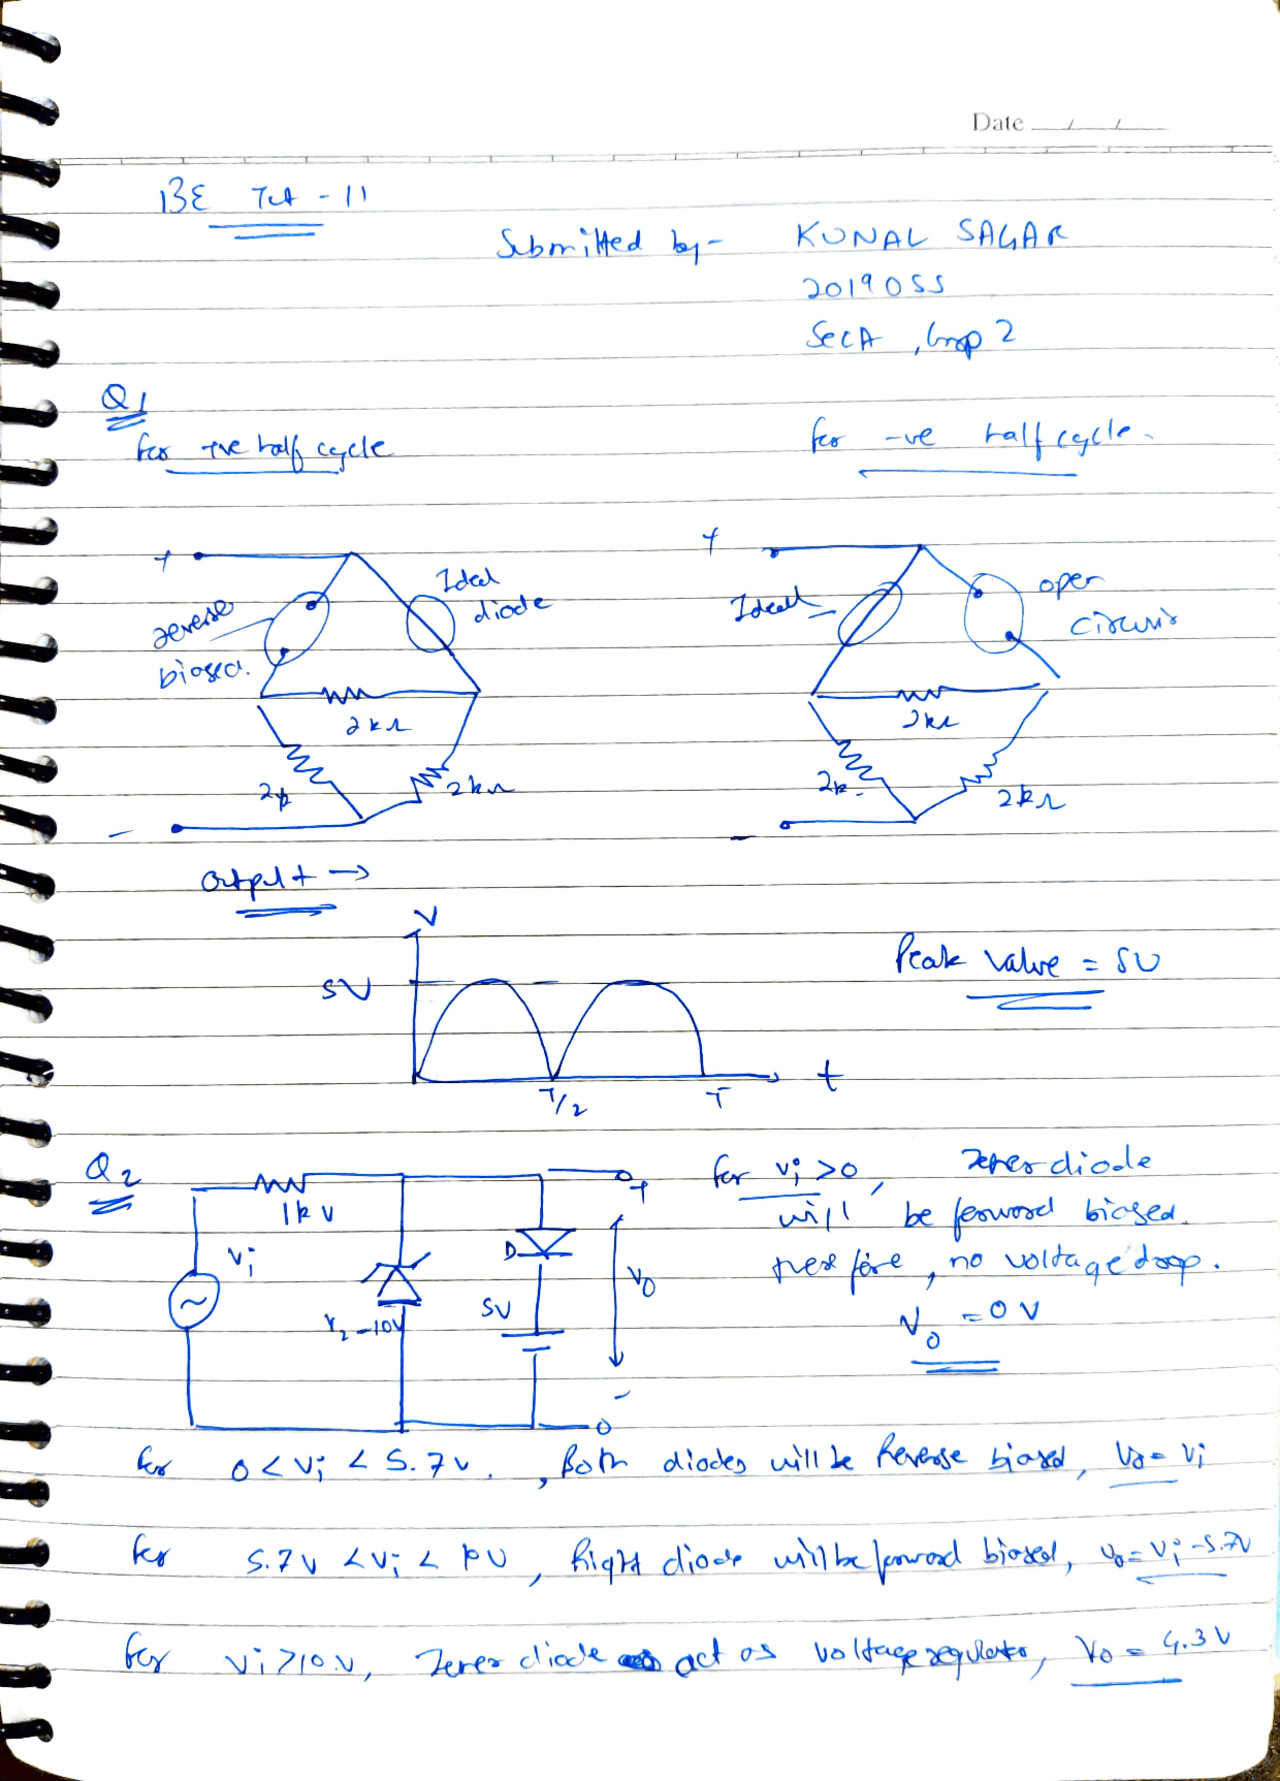 Date
BE Tut - 11
Submitted by - KUNAL SAGAR
2019055
Sec A , Group 2
Q1
For +ve half cycle
For -ve half cycle.
+
Ideal
diode
reverse
biased.
2kΩ
2k
2kΩ
-
+
Ideal
open
circuit
2kΩ
2k.
2kΩ
-
Output →
V
5V
Peak Value = 5V
T/2
T
t
Q2
1kV
Vi
~
Vz-10V
D
5V
+
Vo
-
For Vi >0, Zener diode
will be forward biased.
therefore, no voltage drop.
Vo = 0V
For 0 < Vi < 5.7V. , Both diodes will be Reverse biased, Vo = Vi
For 5.7V < Vi < 10V, Right diode will be forward biased, Vo = Vi - 5.7V
For Vi > 10V, Zener diode act as voltage regulator, Vo = 4.3V